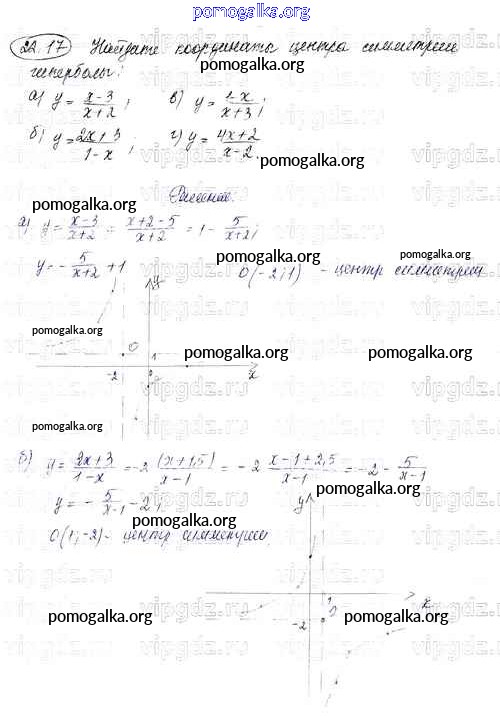 pomogalka.org
22.17 Найдите координаты центра симметрии
гиперболы:
pomogalka.org
а) y = (x-3)/(x+2); в) y = (1-x)/(x+3);
б) y = (2x+3)/(1-x); г) y = (4x+2)/(x-2).
vipgdz.ru
pomogalka.org
Решение.
pomogalka.org
а) y = (x-3)/(x+2) = (x+2-5)/(x+2) = 1 - 5/(x+2);
pomogalka.org pomogalka.org
y = - 5/(x+2) + 1 O(-2;1) - центр симметрии
y
pomogalka.org
O 1 pomogalka.org pomogalka.org
-2 x
vipgdz.ru
pomogalka.org
б) y = (2x+3)/(1-x) = -2 (x+1,5)/(x-1) = -2 (x-1+2,5)/(x-1) = -2 - 5/(x-1)
pomogalka.org
y = - 5/(x-1) - 2; y
pomogalka.org
O(1;-2) - центр симметрии
vipgdz.ru
1 x
pomogalka.org -2 pomogalka.org
vipgdz.ru